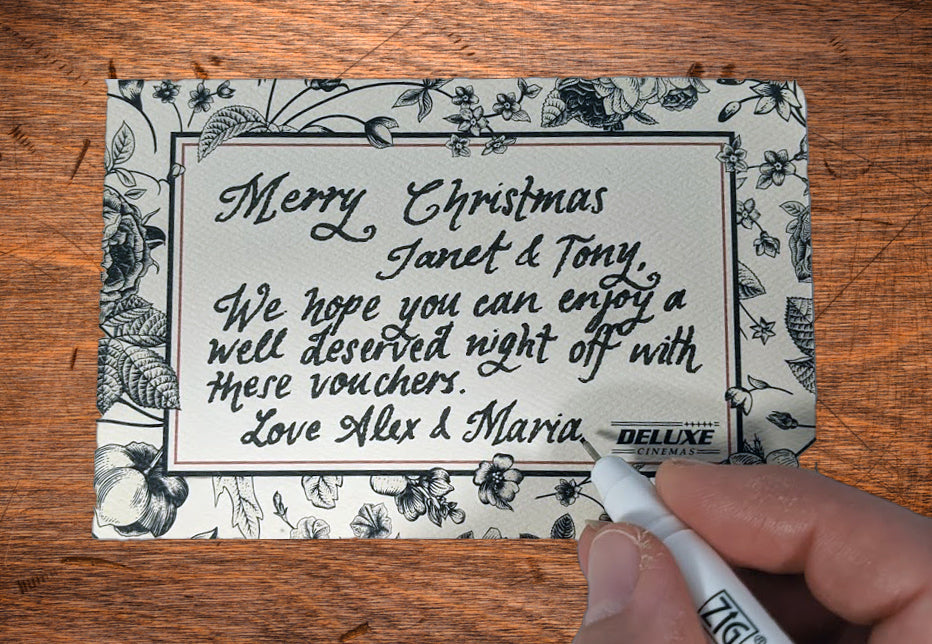 Merry Christmas
Janet & Tony,
We hope you can enjoy a
well deserved night off with
these vouchers.
Love Alex & Maria.
DELUXE
CINEMAS
ZIG